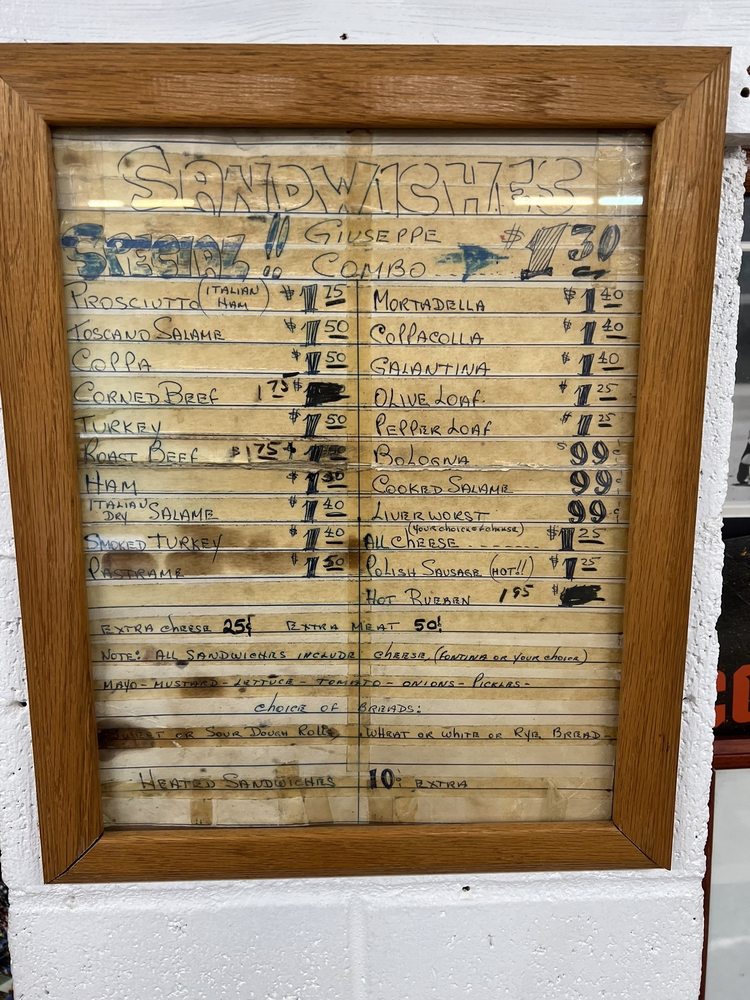 SANDWICHES
SPECIAL!! GIUSEPPE COMBO $1 30
PROSCIUTTO (ITALIAN HAM) $1 75
TOSCANO SALAME $1 50
COPPA $1 50
CORNED BEEF 1 75
TURKEY $1 50
ROAST BEEF $1 75
HAM $1 30
ITALIAN DRY SALAME $1 40
SMOKED TURKEY $1 40
PASTRAME $1 50
MORTADELLA $1 40
COPPACOLLA $1 40
GALANTINA $1 40
OLIVE LOAF. $1 25
PEPPER LOAF $1 25
BOLOGNA 99¢
COOKED SALAME 99¢
LIVERWORST 99¢
ALL CHEESE (YOUR CHOICE CHEESE) $1 25
POLISH SAUSAGE (HOT!!) $1 25
HOT RUEBEN 1 95
EXTRA CHEESE 25¢ EXTRA MEAT 50¢
NOTE: ALL SANDWICHES INCLUDE CHEESE, (FONTINA OR YOUR CHOICE)
MAYO - MUSTARD - LETTUCE - TOMATO - ONIONS - PICKLES -
CHOICE OF BREADS:
WHEAT OR SOUR DOUGH ROLLS, WHEAT OR WHITE OR RYE BREAD -
HEATED SANDWICHES 10¢ EXTRA